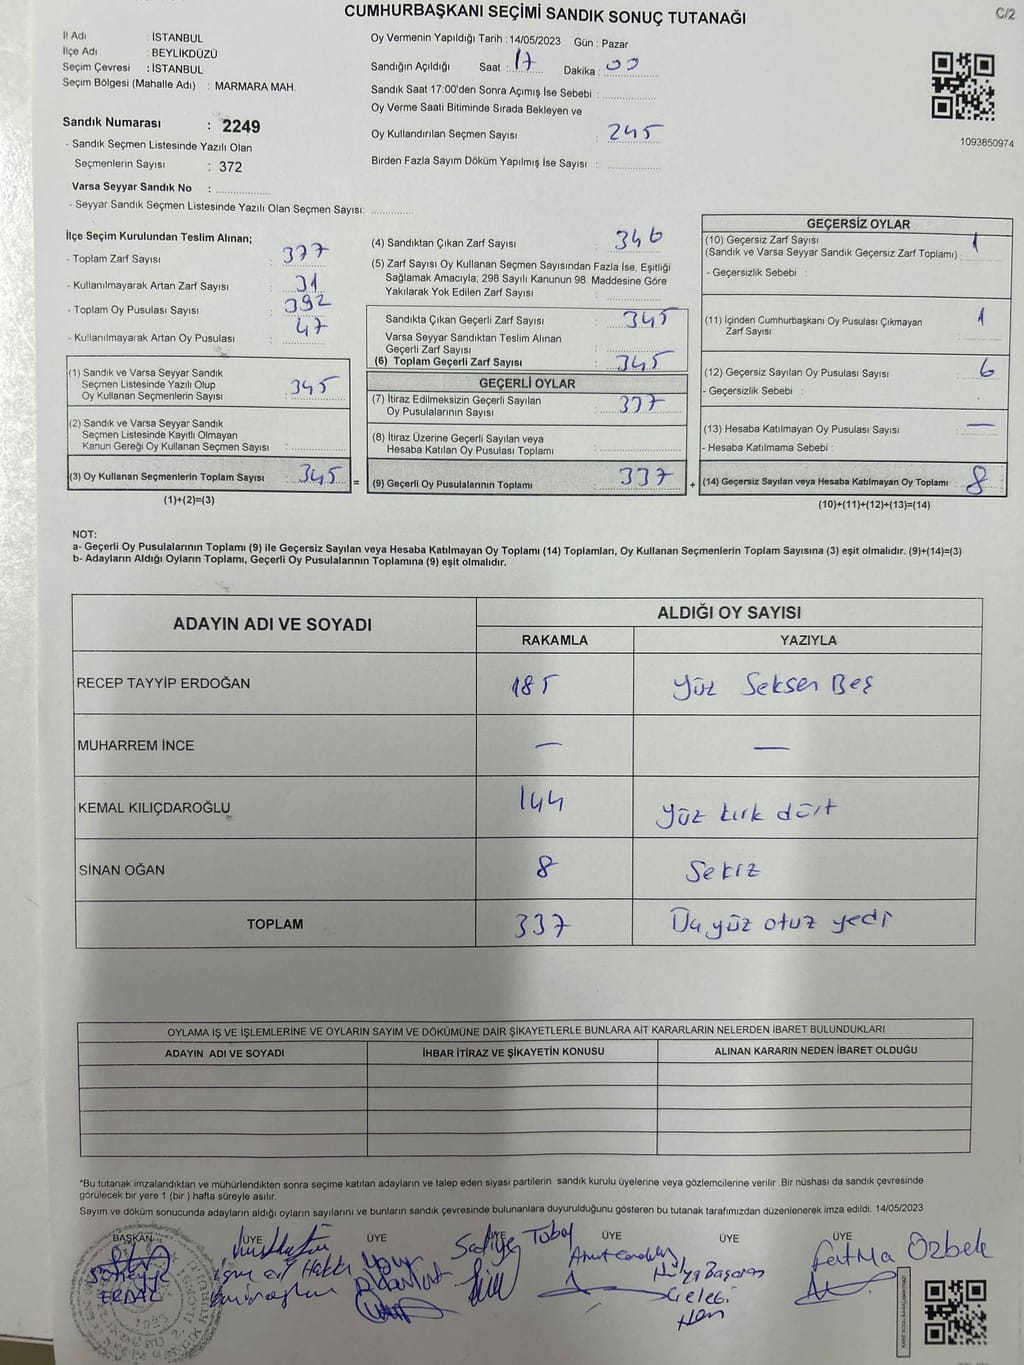 C/2
CUMHURBAŞKANI SEÇİMİ SANDIK SONUÇ TUTANAĞI
İl Adı : İSTANBUL
İlçe Adı : BEYLİKDÜZÜ
Seçim Çevresi : İSTANBUL
Seçim Bölgesi (Mahalle Adı) : MARMARA MAH.
Sandık Numarası : 2249
- Sandık Seçmen Listesinde Yazılı Olan
Seçmenlerin Sayısı : 372
Varsa Seyyar Sandık No :
- Seyyar Sandık Seçmen Listesinde Yazılı Olan Seçmen Sayısı:
Oy Vermenin Yapıldığı Tarih : 14/05/2023 Gün : Pazar
Sandığın Açıldığı Saat : 17 Dakika : 00
Sandık Saat 17:00'den Sonra Açımış İse Sebebi :
Oy Verme Saati Bitiminde Sırada Bekleyen ve
Oy Kullandırılan Seçmen Sayısı : 245
Birden Fazla Sayım Döküm Yapılmış İse Sayısı :
1093850974
İlçe Seçim Kurulundan Teslim Alınan;
- Toplam Zarf Sayısı : 377
- Kullanılmayarak Artan Zarf Sayısı : 31
- Toplam Oy Pusulası Sayısı : 392
- Kullanılmayarak Artan Oy Pusulası : 47
(1) Sandık ve Varsa Seyyar Sandık
Seçmen Listesinde Yazılı Olup
Oy Kullanan Seçmenlerin Sayısı : 345
(2) Sandık ve Varsa Seyyar Sandık
Seçmen Listesinde Kayıtlı Olmayan
Kanun Gereği Oy Kullanan Seçmen Sayısı :
(3) Oy Kullanan Seçmenlerin Toplam Sayısı : 345 =
(1)+(2)=(3)
(4) Sandıktan Çıkan Zarf Sayısı : 346
(5) Zarf Sayısı Oy Kullanan Seçmen Sayısından Fazla İse, Eşitliği
Sağlamak Amacıyla; 298 Sayılı Kanunun 98. Maddesine Göre
Yakılarak Yok Edilen Zarf Sayısı :
Sandıkta Çıkan Geçerli Zarf Sayısı : 345
Varsa Seyyar Sandıktan Teslim Alınan
Geçerli Zarf Sayısı :
(6) Toplam Geçerli Zarf Sayısı : 345
GEÇERLİ OYLAR
(7) İtiraz Edilmeksizin Geçerli Sayılan
Oy Pusulalarının Sayısı : 337
(8) İtiraz Üzerine Geçerli Sayılan veya
Hesaba Katılan Oy Pusulası Toplamı :
(9) Geçerli Oy Pusulalarının Toplamı : 337 +
GEÇERSİZ OYLAR
(10) Geçersiz Zarf Sayısı
(Sandık ve Varsa Seyyar Sandık Geçersiz Zarf Toplamı) : 1
- Geçersizlik Sebebi :
(11) İçinden Cumhurbaşkanı Oy Pusulası Çıkmayan
Zarf Sayısı : 1
(12) Geçersiz Sayılan Oy Pusulası Sayısı : 6
- Geçersizlik Sebebi :
(13) Hesaba Katılmayan Oy Pusulası Sayısı : —
- Hesaba Katılmama Sebebi :
(14) Geçersiz Sayılan veya Hesaba Katılmayan Oy Toplamı : 8
(10)+(11)+(12)+(13)=(14)
NOT:
a- Geçerli Oy Pusulalarının Toplamı (9) ile Geçersiz Sayılan veya Hesaba Katılmayan Oy Toplamı (14) Toplamları, Oy Kullanan Seçmenlerin Toplam Sayısına (3) eşit olmalıdır. (9)+(14)=(3)
b- Adayların Aldığı Oyların Toplamı, Geçerli Oy Pusulalarının Toplamına (9) eşit olmalıdır.
ADAYIN ADI VE SOYADI ALDIĞI OY SAYISI
RAKAMLA YAZIYLA
RECEP TAYYİP ERDOĞAN 185 Yüz Seksen Beş
MUHARREM İNCE — —
KEMAL KILIÇDAROĞLU 144 Yüz kırk dört
SİNAN OĞAN 8 Sekiz
TOPLAM 337 Üç yüz otuz yedi
OYLAMA İŞ VE İŞLEMLERİNE VE OYLARIN SAYIM VE DÖKÜMÜNE DAİR ŞİKAYETLERLE BUNLARA AİT KARARLARIN NELERDEN İBARET BULUNDUKLARI
ADAYIN ADI VE SOYADI İHBAR İTİRAZ VE ŞİKAYETİN KONUSU ALINAN KARARIN NEDEN İBARET OLDUĞU
*Bu tutanak imzalandıktan ve mühürlendikten sonra seçime katılan adayların ve talep eden siyasi partilerin sandık kurulu üyelerine veya gözlemcilerine verilir .Bir nüshası da sandık çevresinde
görülecek bir yere 1 (bir ) hafta süreyle asılır.
Sayım ve döküm sonucunda adayların aldığı oyların sayılarını ve bunların sandık çevresinde bulunanlara duyurulduğunu gösteren bu tutanak tarafımızdan düzenlenerek imza edildi. 14/05/2023
BAŞKAN ÜYE ÜYE ÜYE ÜYE ÜYE ÜYE
ERDAL
Hülya Başaran
Fatma Özbek